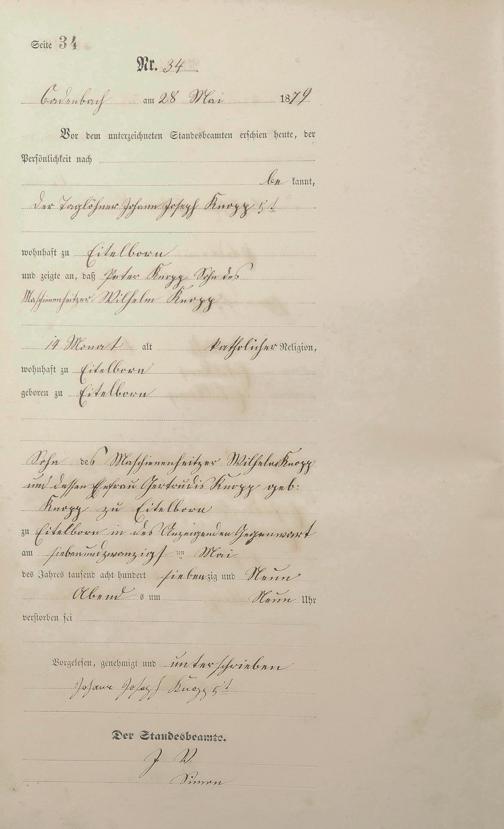 Seite 34
Nr. 34
Cadenbach am 28 Mai 1879
Vor dem unterzeichneten Standesbeamten erschien heute, der
Persönlichkeit nach
be kannt,
der Taglöhner Johann Joseph Knopp 5t
wohnhaft zu Eitelborn
und zeigte an, daß Peter Knopp Sohn des
Maschienenheitzer Wilhelm Knopp
Monat alt katholischer Religion,
wohnhaft zu Eitelborn
geboren zu Eitelborn
Sohn des Maschienenheitzer Wilhelm Knopp
und dessen Efrau Gertrudis Knopp geb:
Knopp zu Eitelborn
zu Eitelborn in des Anzeigenden Gegenwart
am siebenundzwanzigst en Mai
des Jahres tausend acht hundert siebenzig und Neun
Abend s um Neun Uhr
verstorben sei
Vorgelesen, genehmigt und unterschrieben
Johann Joseph Knopp 5t
Der Standesbeamte.
J V
Simon